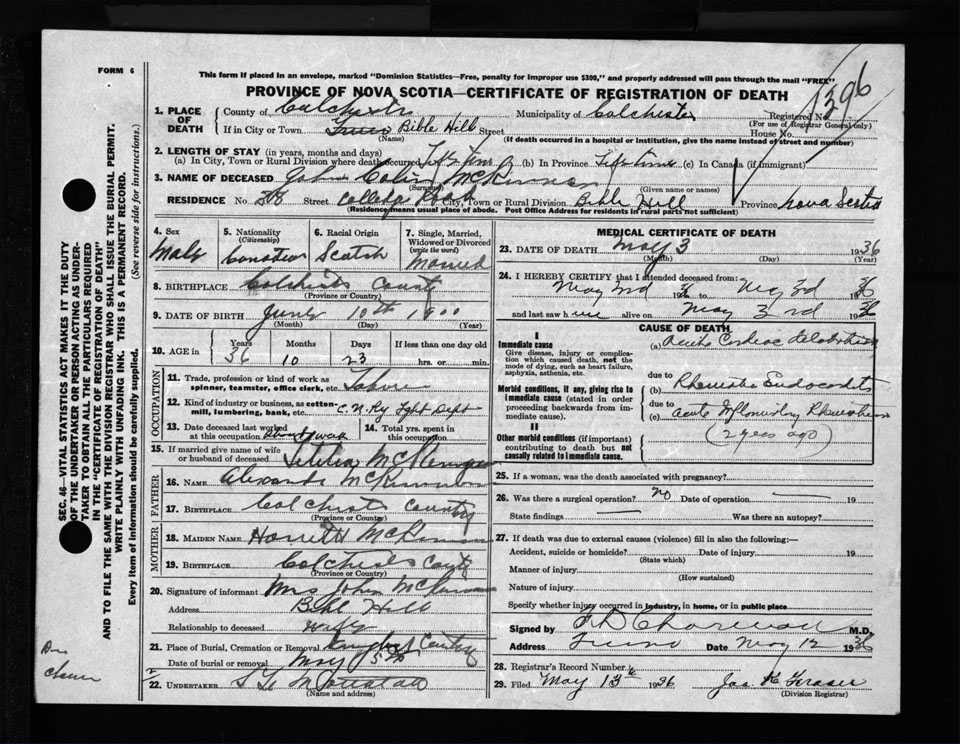 FORM 6
This form if placed in an envelope, marked "Dominion Statistics—Free, penalty for improper use $300," and properly addressed will pass through the mail "FREE"
PROVINCE OF NOVA SCOTIA—CERTIFICATE OF REGISTRATION OF DEATH
1. PLACE OF DEATH
County of Colchester Municipality of Colchester Registered No.
(For use of Registrar General only)
If in City or Town Truro Bible Hill Street House No.
(Name) (If death occurred in a hospital or institution, give the name instead of street and number)
2. LENGTH OF STAY (in years, months and days)
(a) In City, Town or Rural Division where death occurred Life Time (b) In Province Life time (c) In Canada (if immigrant)
3. NAME OF DECEASED John Colin McKinnon
(Surname) (Given name or names)
RESIDENCE No. 308 Street College Road City, Town or Rural Division Bible Hill Province Nova Scotia
(Residence means usual place of abode. Post Office Address for residents in rural parts not sufficient)
4. Sex
Male
5. Nationality
(Citizenship)
Canadian
6. Racial Origin
Scotch
7. Single, Married, Widowed or Divorced
(write the word)
Married
8. BIRTHPLACE Colchester County
(Province or Country)
9. DATE OF BIRTH June 10th 1900
(Month) (Day) (Year)
10. AGE in
Years Months Days If less than one day old
36 10 23 hrs. or min.
OCCUPATION
11. Trade, profession or kind of work as spinner, teamster, office clerk, etc. Labor
12. Kind of industry or business, as cotton-mill, lumbering, bank, etc. C. N. Ry Fght Dept
13. Date deceased last worked at this occupation about 1 week
14. Total yrs. spent in this occupation
15. If married give name of wife or husband of deceased Letitia McKinnon
FATHER
16. NAME Alexander McKinnon
17. BIRTHPLACE Colchester County
(Province or Country)
MOTHER
18. MAIDEN NAME Harriett McKinnon
19. BIRTHPLACE Colchester County
(Province or Country)
20. Signature of informant Mrs John McKinnon
Address Bible Hill
Relationship to deceased wife
21. Place of Burial, Cremation or Removal County
Date of burial or removal May 5th
22. UNDERTAKER
(Name and address)
MEDICAL CERTIFICATE OF DEATH
23. DATE OF DEATH May 3 1936
(Month) (Day) (Year)
24. I HEREBY CERTIFY that I attended deceased from
May 3rd 36 to May 3rd 1936
and last saw h alive on May 3rd 1936
CAUSE OF DEATH
I
Immediate cause
Give disease, injury or complication which caused death, not the mode of dying, such as heart failure, asphyxia, asthenia, etc.
(a) Acute Cardiac dilatation
Morbid conditions, if any, giving rise to immediate cause (stated in order proceeding backwards from immediate cause).
due to
(b) Rheumatic Endocarditis
due to
(c) Acute Inflamatory Rheumatism
(2 years ago)
II
Other morbid conditions (if important) contributing to death but not causally related to immediate cause.
25. If a woman, was the death associated with pregnancy?
26. Was there a surgical operation? no Date of operation 19
State findings Was there an autopsy?
27. If death was due to external causes (violence) fill in also the following:—
Accident, suicide or homicide? Date of injury 19
(State which)
Manner of injury
(How sustained)
Nature of injury
Specify whether injury occurred in industry, in home, or in public place
Signed by M.D.
Address Truro Date May 12 1936
28. Registrar's Record Number
29. Filed May 13th 1936 Jas K Fraser
(Division Registrar)
SEC. 46—VITAL STATISTICS ACT MAKES IT THE DUTY OF THE UNDERTAKER OR PERSON ACTING AS UNDERTAKER TO OBTAIN ALL THE PARTICULARS REQUIRED IN THE "CERTIFICATE OF REGISTRATION OF DEATH"
AND TO FILE THE SAME WITH THE DIVISION REGISTRAR WHO SHALL ISSUE THE BURIAL PERMIT.
WRITE PLAINLY WITH UNFADING INK. THIS IS A PERMANENT RECORD.
Every item of information should be carefully supplied. (See reverse side for instructions.)